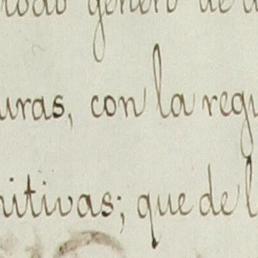 género de
uras, con la regu
nitivas; que de l